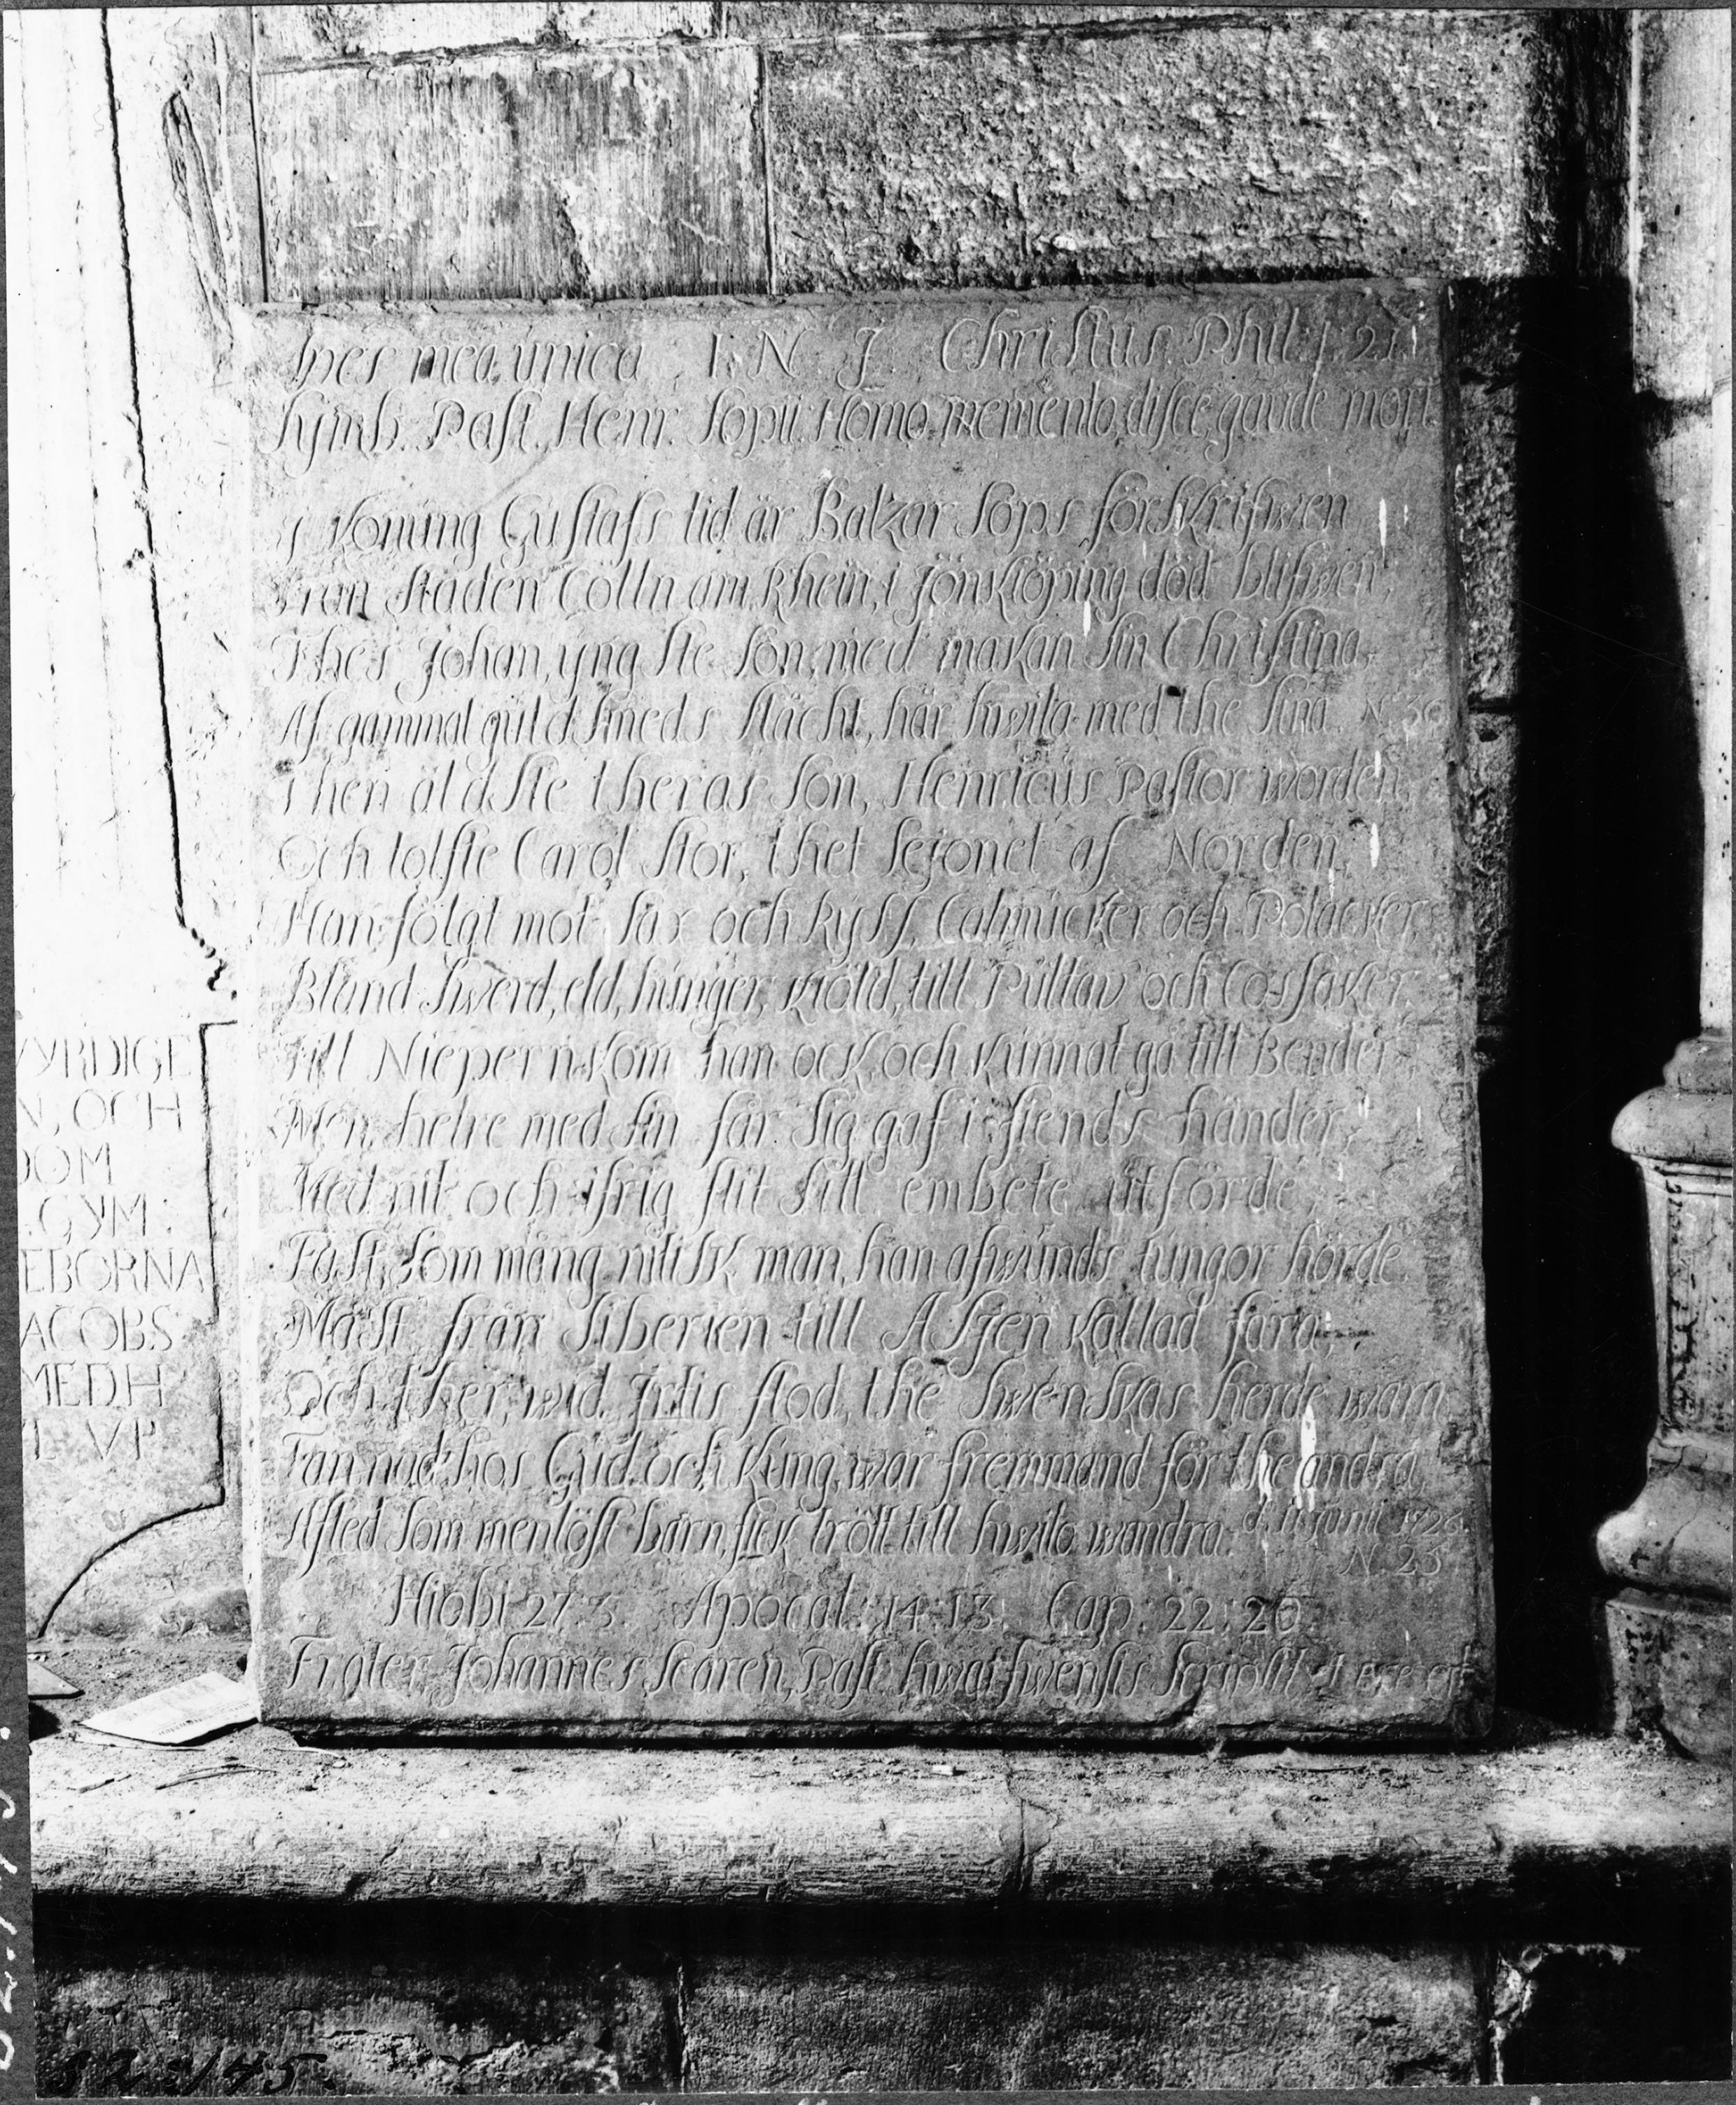 Spes mea unica I. N. J. Christus. Phil. 1. 21.
Symb. Past. Henr. Sopii: Homo memento, disce, gaude mori.
I Konung Gustafs tid är Balzar Sops förskrifwen
Från staden Cölln am Rhein, i Jönkiöping död blifwen,
Thes Johan, yngste son, med makan sin Christina,
Af gammal guldsmeds slächt, här hwila med the sina. N. 30
Then äldste theras son, Henricus Pastor worden,
Och tolfte Carol stor, thet lejonet af Norden,
Han följt mot Sax och Ryss, Calmucker och Polacker,
Bland swerd, eld, hunger, kiöld, till Pultav och Cossaker.
Till Niepern kom han ock, och kunnat gå till Bender,
Men helre med sin får sig gaf i fiends händer,
Med nit och ifrig flit sitt embete utförde,
Fast, som mång nitisk man, han afwunds tungor hörde.
Mäst från Siberien till Asjen kallad fara,
Och ther, wid Irtis flod, the Swenskas herde wara,
Fan nåd hos Gud och Kung, war fremmand för the andra,
Afled som menlöst barn, fick trött till hwilo wandra. d. Junii 1726.
N. 23
Hiobi 27: 3. Apocal. 14: 13. Cap. 22: 20.
Frater, Johannes Scaren, Past. scripsit et erexit
WYRDIGE
N, OCH
DOM
GYM:
EBORNA
ACOBS
MEDH
L VP
82:145.